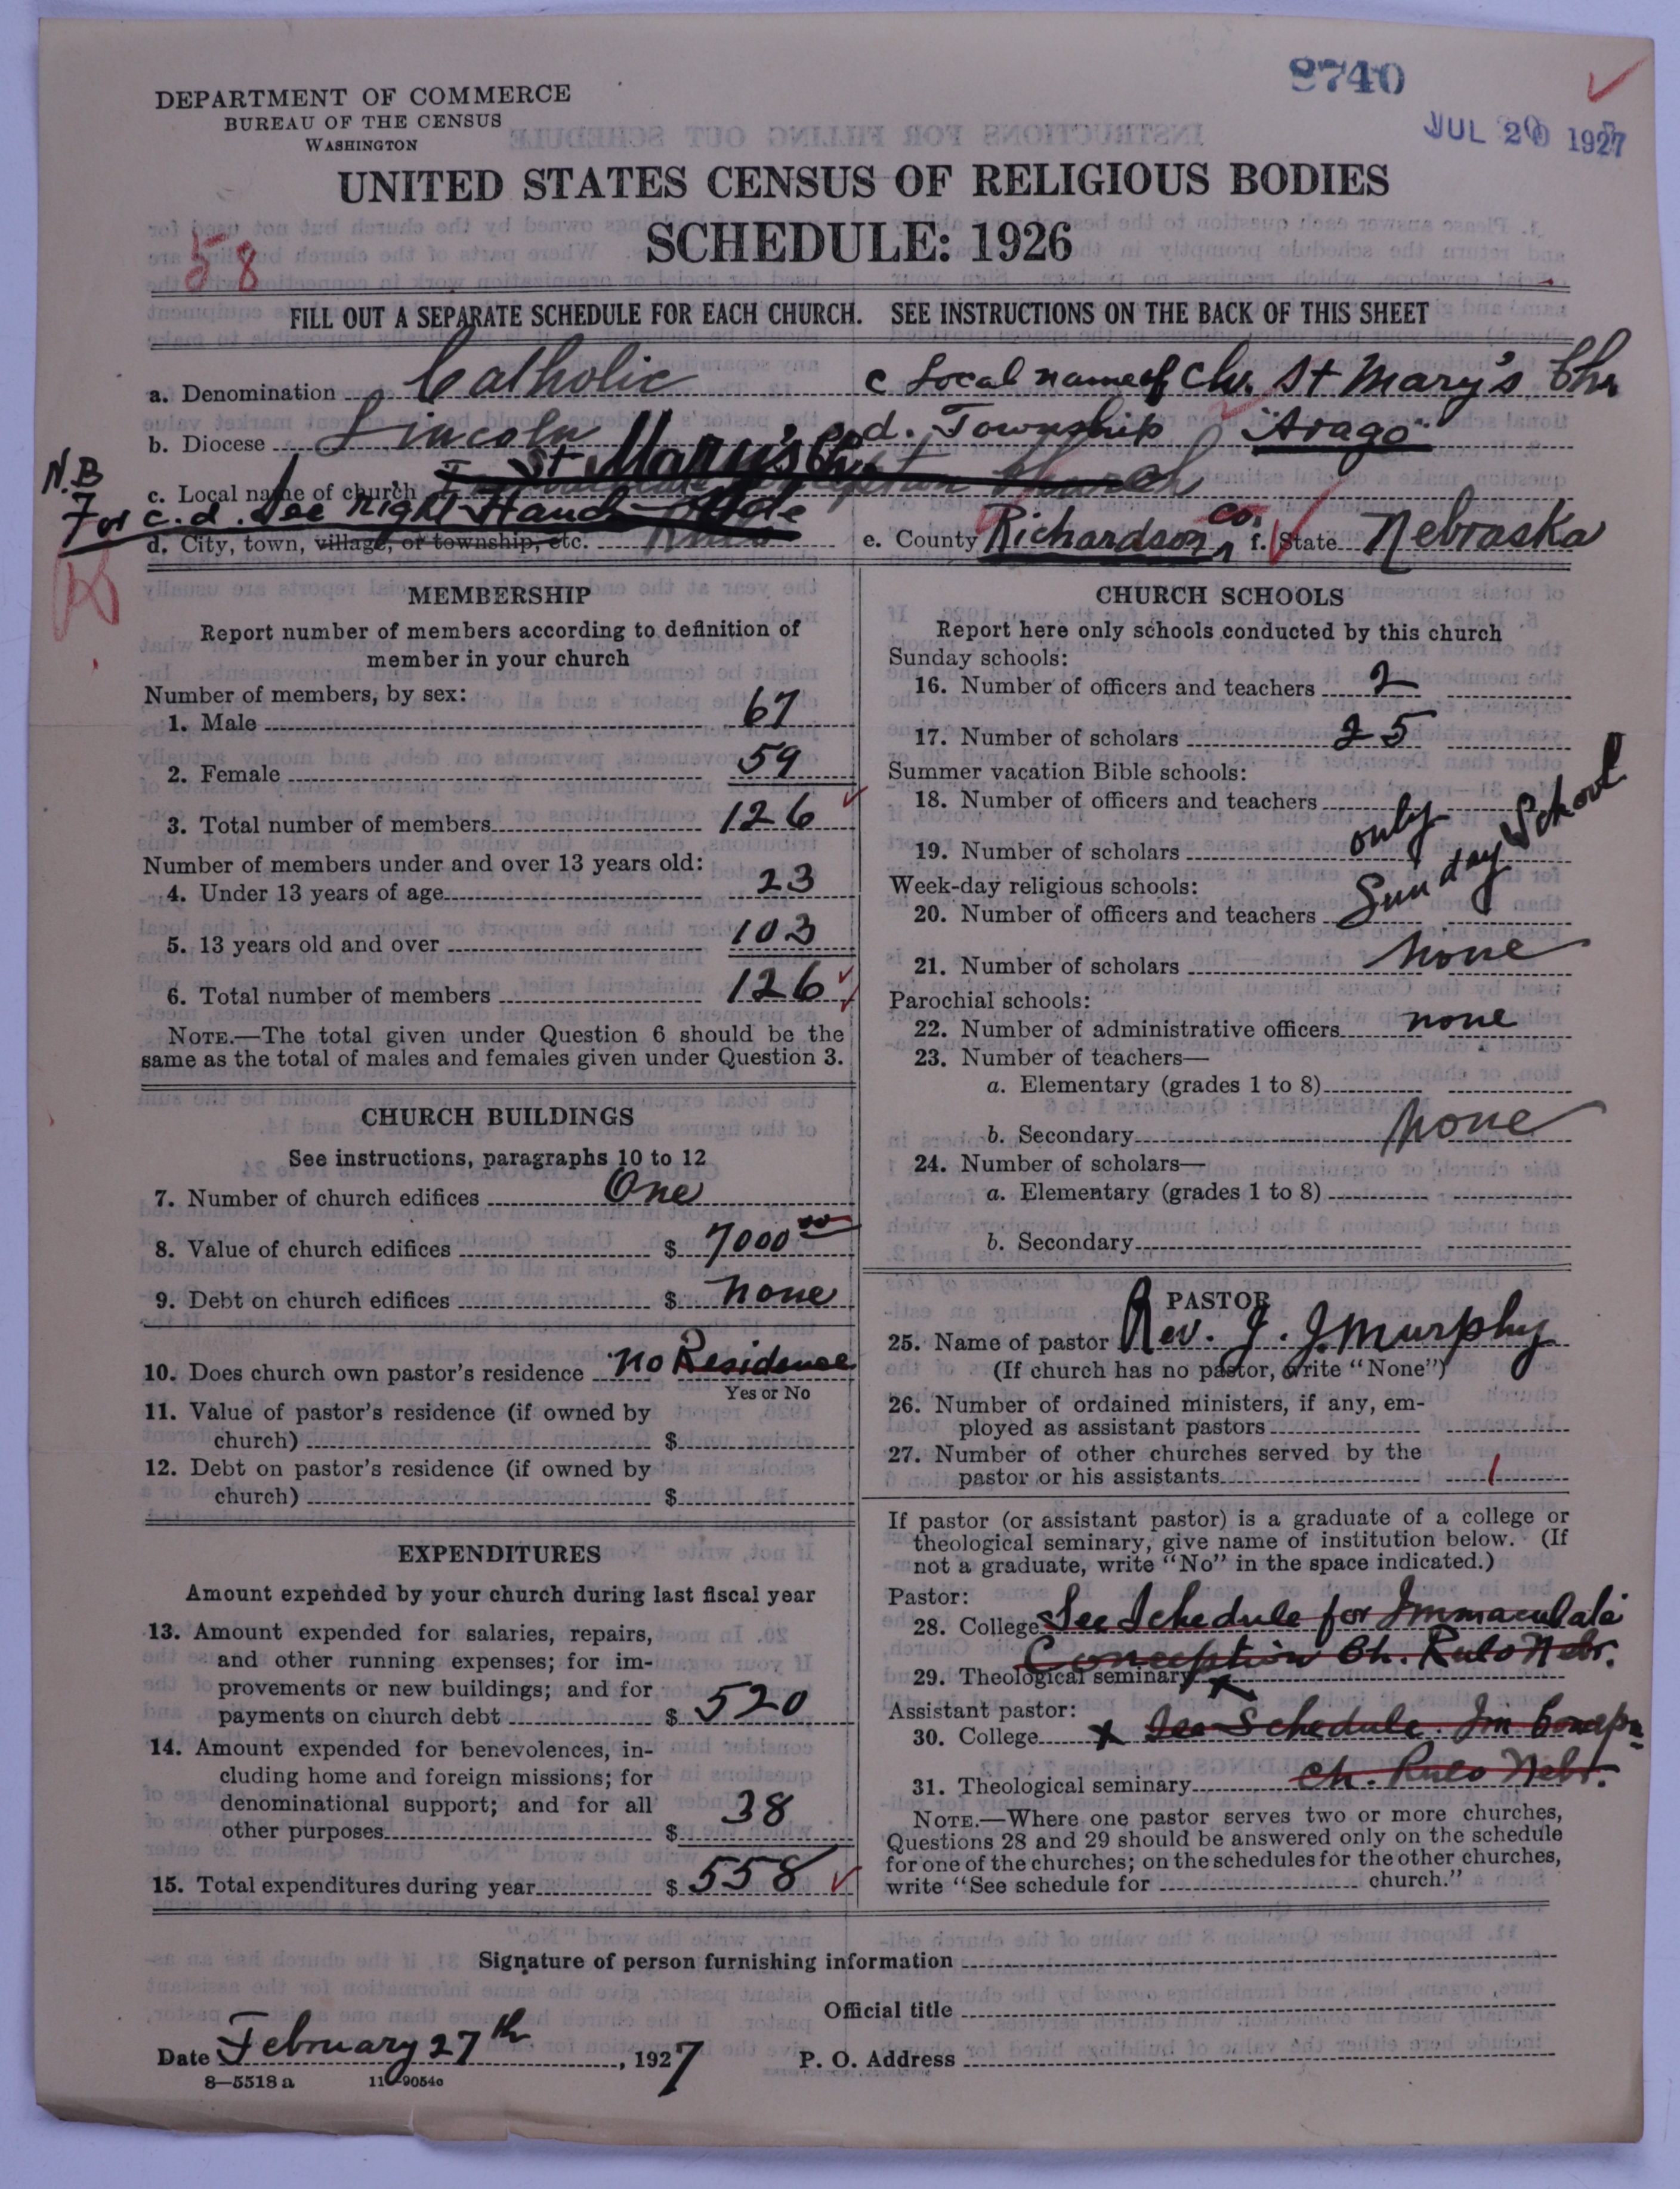 8740
JUL 20 1927
DEPARTMENT OF COMMERCE
BUREAU OF THE CENSUS
WASHINGTON
UNITED STATES CENSUS OF RELIGIOUS BODIES
SCHEDULE: 1926
58
FILL OUT A SEPARATE SCHEDULE FOR EACH CHURCH. SEE INSTRUCTIONS ON THE BACK OF THIS SHEET
a. Denomination Catholic
c Local name of Ch. St Mary's Chr
b. Diocese Lincoln
d. Township "Arago"
N.B
c. Local name of church St Mary's Ch. Immaculate Conception Church
For c.d. See Right Hand Side
d. City, town, village, or township, etc. Rulo
e. County Richardson Co. f. State Nebraska
MEMBERSHIP
Report number of members according to definition of
member in your church
Number of members, by sex:
1. Male 67
2. Female 59
3. Total number of members 126
Number of members under and over 13 years old:
4. Under 13 years of age 23
5. 13 years old and over 103
6. Total number of members 126
NOTE.—The total given under Question 6 should be the
same as the total of males and females given under Question 3.
CHURCH BUILDINGS
See instructions, paragraphs 10 to 12
7. Number of church edifices One
8. Value of church edifices $ 7000 00
9. Debt on church edifices $ None
10. Does church own pastor's residence No Residence
Yes or No
11. Value of pastor's residence (if owned by
church) $
12. Debt on pastor's residence (if owned by
church) $
EXPENDITURES
Amount expended by your church during last fiscal year
13. Amount expended for salaries, repairs,
and other running expenses; for im-
provements or new buildings; and for
payments on church debt $ 520
14. Amount expended for benevolences, in-
cluding home and foreign missions; for
denominational support; and for all
other purposes $ 38
15. Total expenditures during year $ 558
CHURCH SCHOOLS
Report here only schools conducted by this church
Sunday schools:
16. Number of officers and teachers 2
17. Number of scholars 25
Summer vacation Bible schools:
18. Number of officers and teachers
19. Number of scholars only
Week-day religious schools:
20. Number of officers and teachers Sunday School
21. Number of scholars none
Parochial schools:
22. Number of administrative officers none
23. Number of teachers—
a. Elementary (grades 1 to 8)
b. Secondary None
24. Number of scholars—
a. Elementary (grades 1 to 8)
b. Secondary
PASTOR
25. Name of pastor Rev. J. J. Murphy
(If church has no pastor, write "None")
26. Number of ordained ministers, if any, em-
ployed as assistant pastors
27. Number of other churches served by the
pastor or his assistants 1
If pastor (or assistant pastor) is a graduate of a college or
theological seminary, give name of institution below. (If
not a graduate, write "No" in the space indicated.)
Pastor:
28. College See Schedule for Immaculate
Conception Ch. Rulo Nebr.
29. Theological seminary x
Assistant pastor:
30. College x See Schedule. Im Concepn
31. Theological seminary Ch. Rulo Nebr.
NOTE.—Where one pastor serves two or more churches,
Questions 28 and 29 should be answered only on the schedule
for one of the churches; on the schedules for the other churches,
write "See schedule for church."
Signature of person furnishing information
Official title
Date February 27th, 1927
P. O. Address
8—5518 a 11—9054c